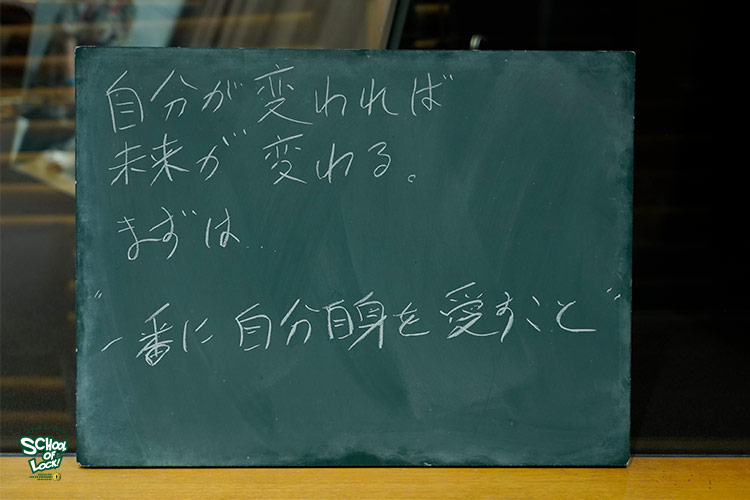 自分が変われば
未来が変わる。
まずは…
"一番に自分自身を愛すこと"
SCHOOL
OF
LOCK!